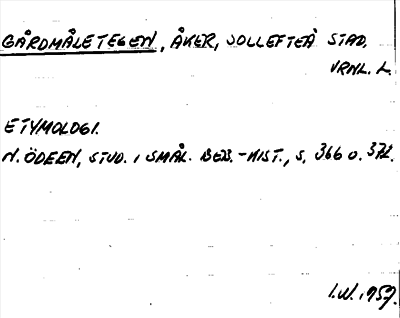 GÅRDMÅLETEGEN, ÅKER, SOLLEFTEÅ STAD.
VRNL. L.
ETYMOLOGI.
N. ÖDEEN, STUD. I SMÅL. BEB.-HIST., S. 366 o. 372.
I.W. 1957.